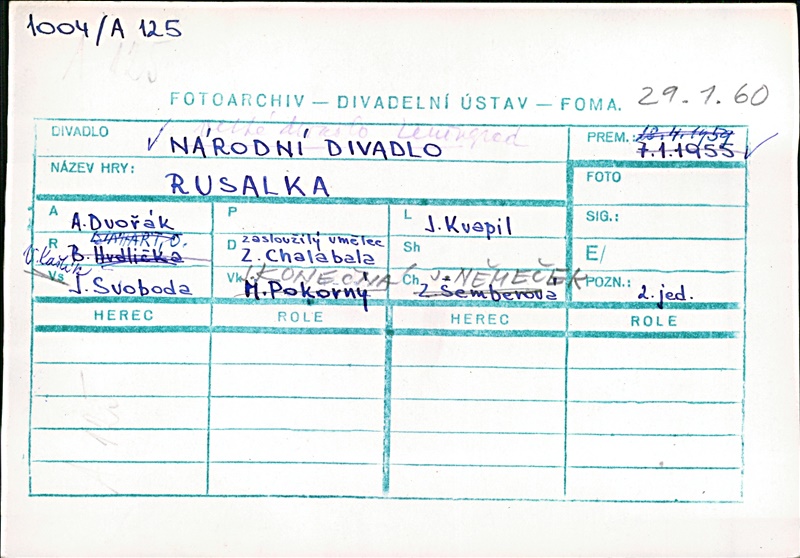 1004/A 125
FOTOARCHIV — DIVADELNÍ ÚSTAV — FOMA. 29.1.60
DIVADLO NÁRODNÍ DIVADLO PREM.: 7.1.1955
NÁZEV HRY: RUSALKA FOTO
A A. Dvořák P L J. Kvapil SIG.:
R B. Hrdlička D zasloužilý umělec Z. Chalabala Sh E/
Vlastík
KONEČNÁ J. NĚMEČEK
Vs J. Svoboda Vk M. Pokorný Ch Z. Šemberová POZN.: 2. jed.
HEREC ROLE HEREC ROLE